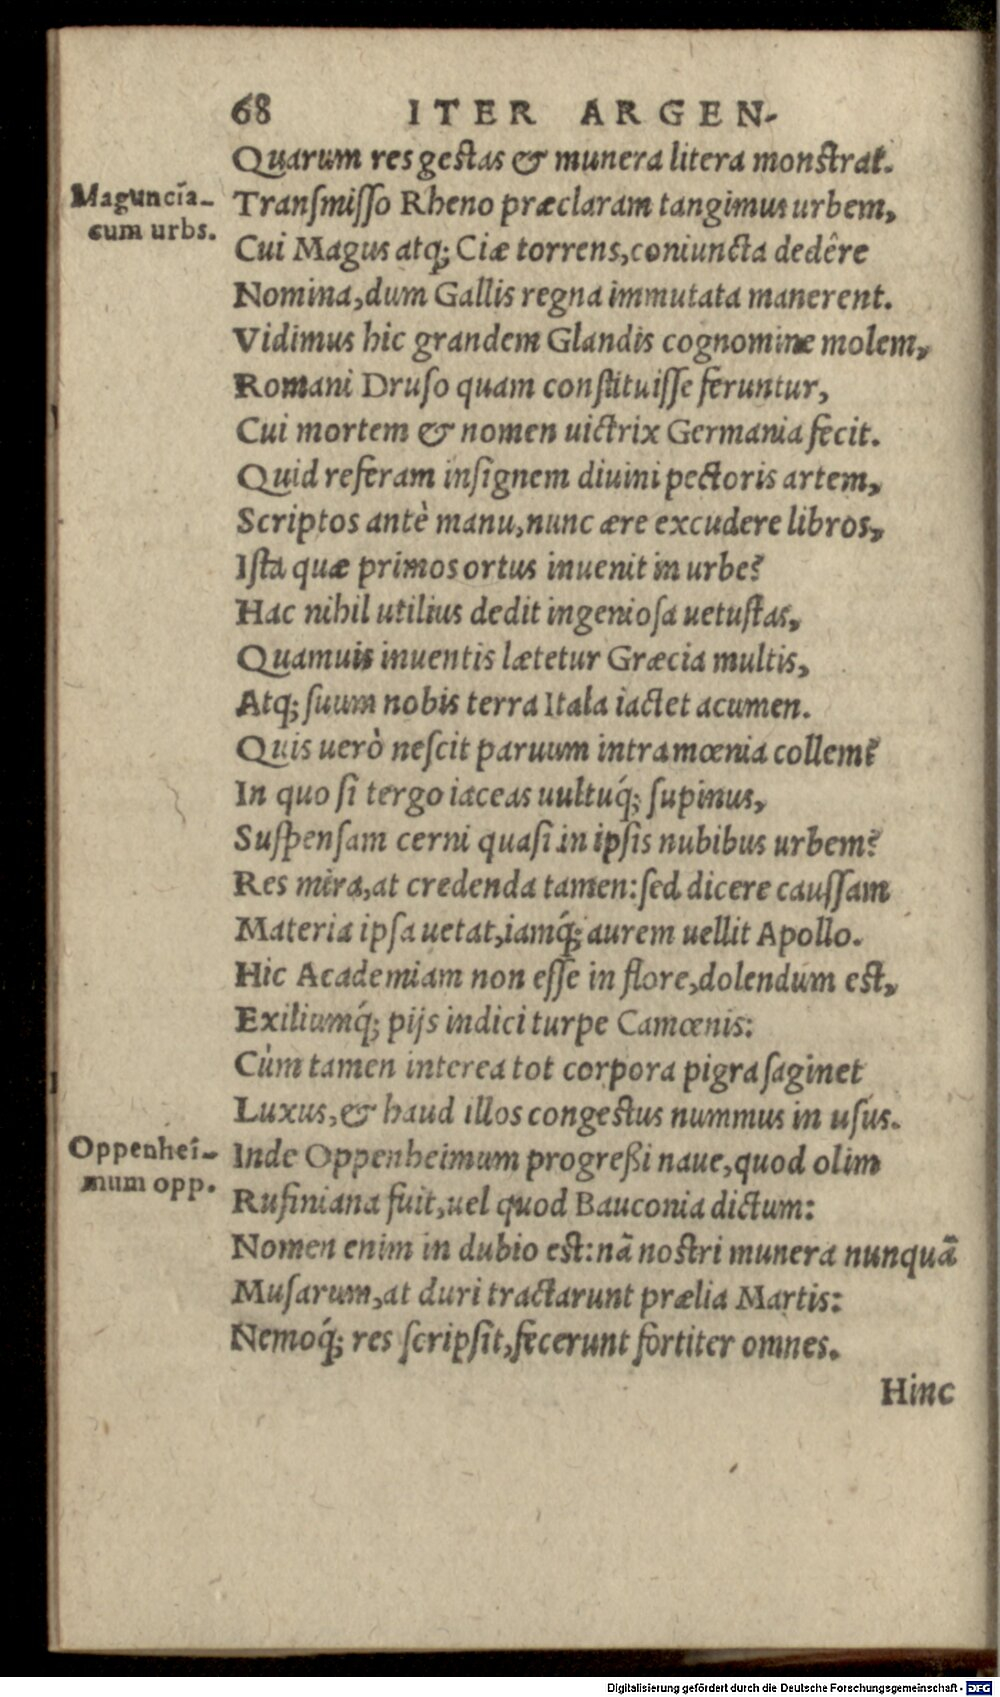 68 ITER ARGEN-
Quarum res gestas & munera litera monstrat.
Maguncia-
cum urbs.
Transmisso Rheno præclaram tangimus urbem,
Cui Magus atq; Ciæ torrens, coniuncta dedêre
Nomina, dum Gallis regna immutata manerent.
Vidimus hic grandem Glandis cognomine molem,
Romani Druso quam constituisse feruntur,
Cui mortem & nomen uictrix Germania fecit.
Quid referam insignem diuini pectoris artem,
Scriptos antè manu, nunc ære excudere libros,
Ista quæ primos ortus inuenit in urbe?
Hac nihil utilius dedit ingeniosa uetustas,
Quamuis inuentis lætetur Græcia multis,
Atq; suum nobis terra Itala iactet acumen.
Quis uerò nescit paruum intra mœnia collem?
In quo si tergo iaceas uultuq́; supinus,
Suspensam cerni quasi in ipsis nubibus urbem?
Res mira, at credenda tamen: sed dicere caussam
Materia ipsa uetat, iamq́; aurem uellit Apollo.
Hic Academiam non esse in flore, dolendum est,
Exiliumq́; pijs indici turpe Camœnis:
Cùm tamen interea tot corpora pigra saginet
Luxus, & haud illos congestus nummus in usus.
Oppenhei-
mum opp.
Inde Oppenheimum progreßi naue, quod olim
Rufiniana fuit, uel quod Bauconia dictum:
Nomen enim in dubio est: nã nostri munera nunquã
Musarum, at duri tractarunt prælia Martis:
Nemoq́; res scripsit, fecerunt fortiter omnes.
Hinc
Digitalisierung gefördert durch die Deutsche Forschungsgemeinschaft - DFG